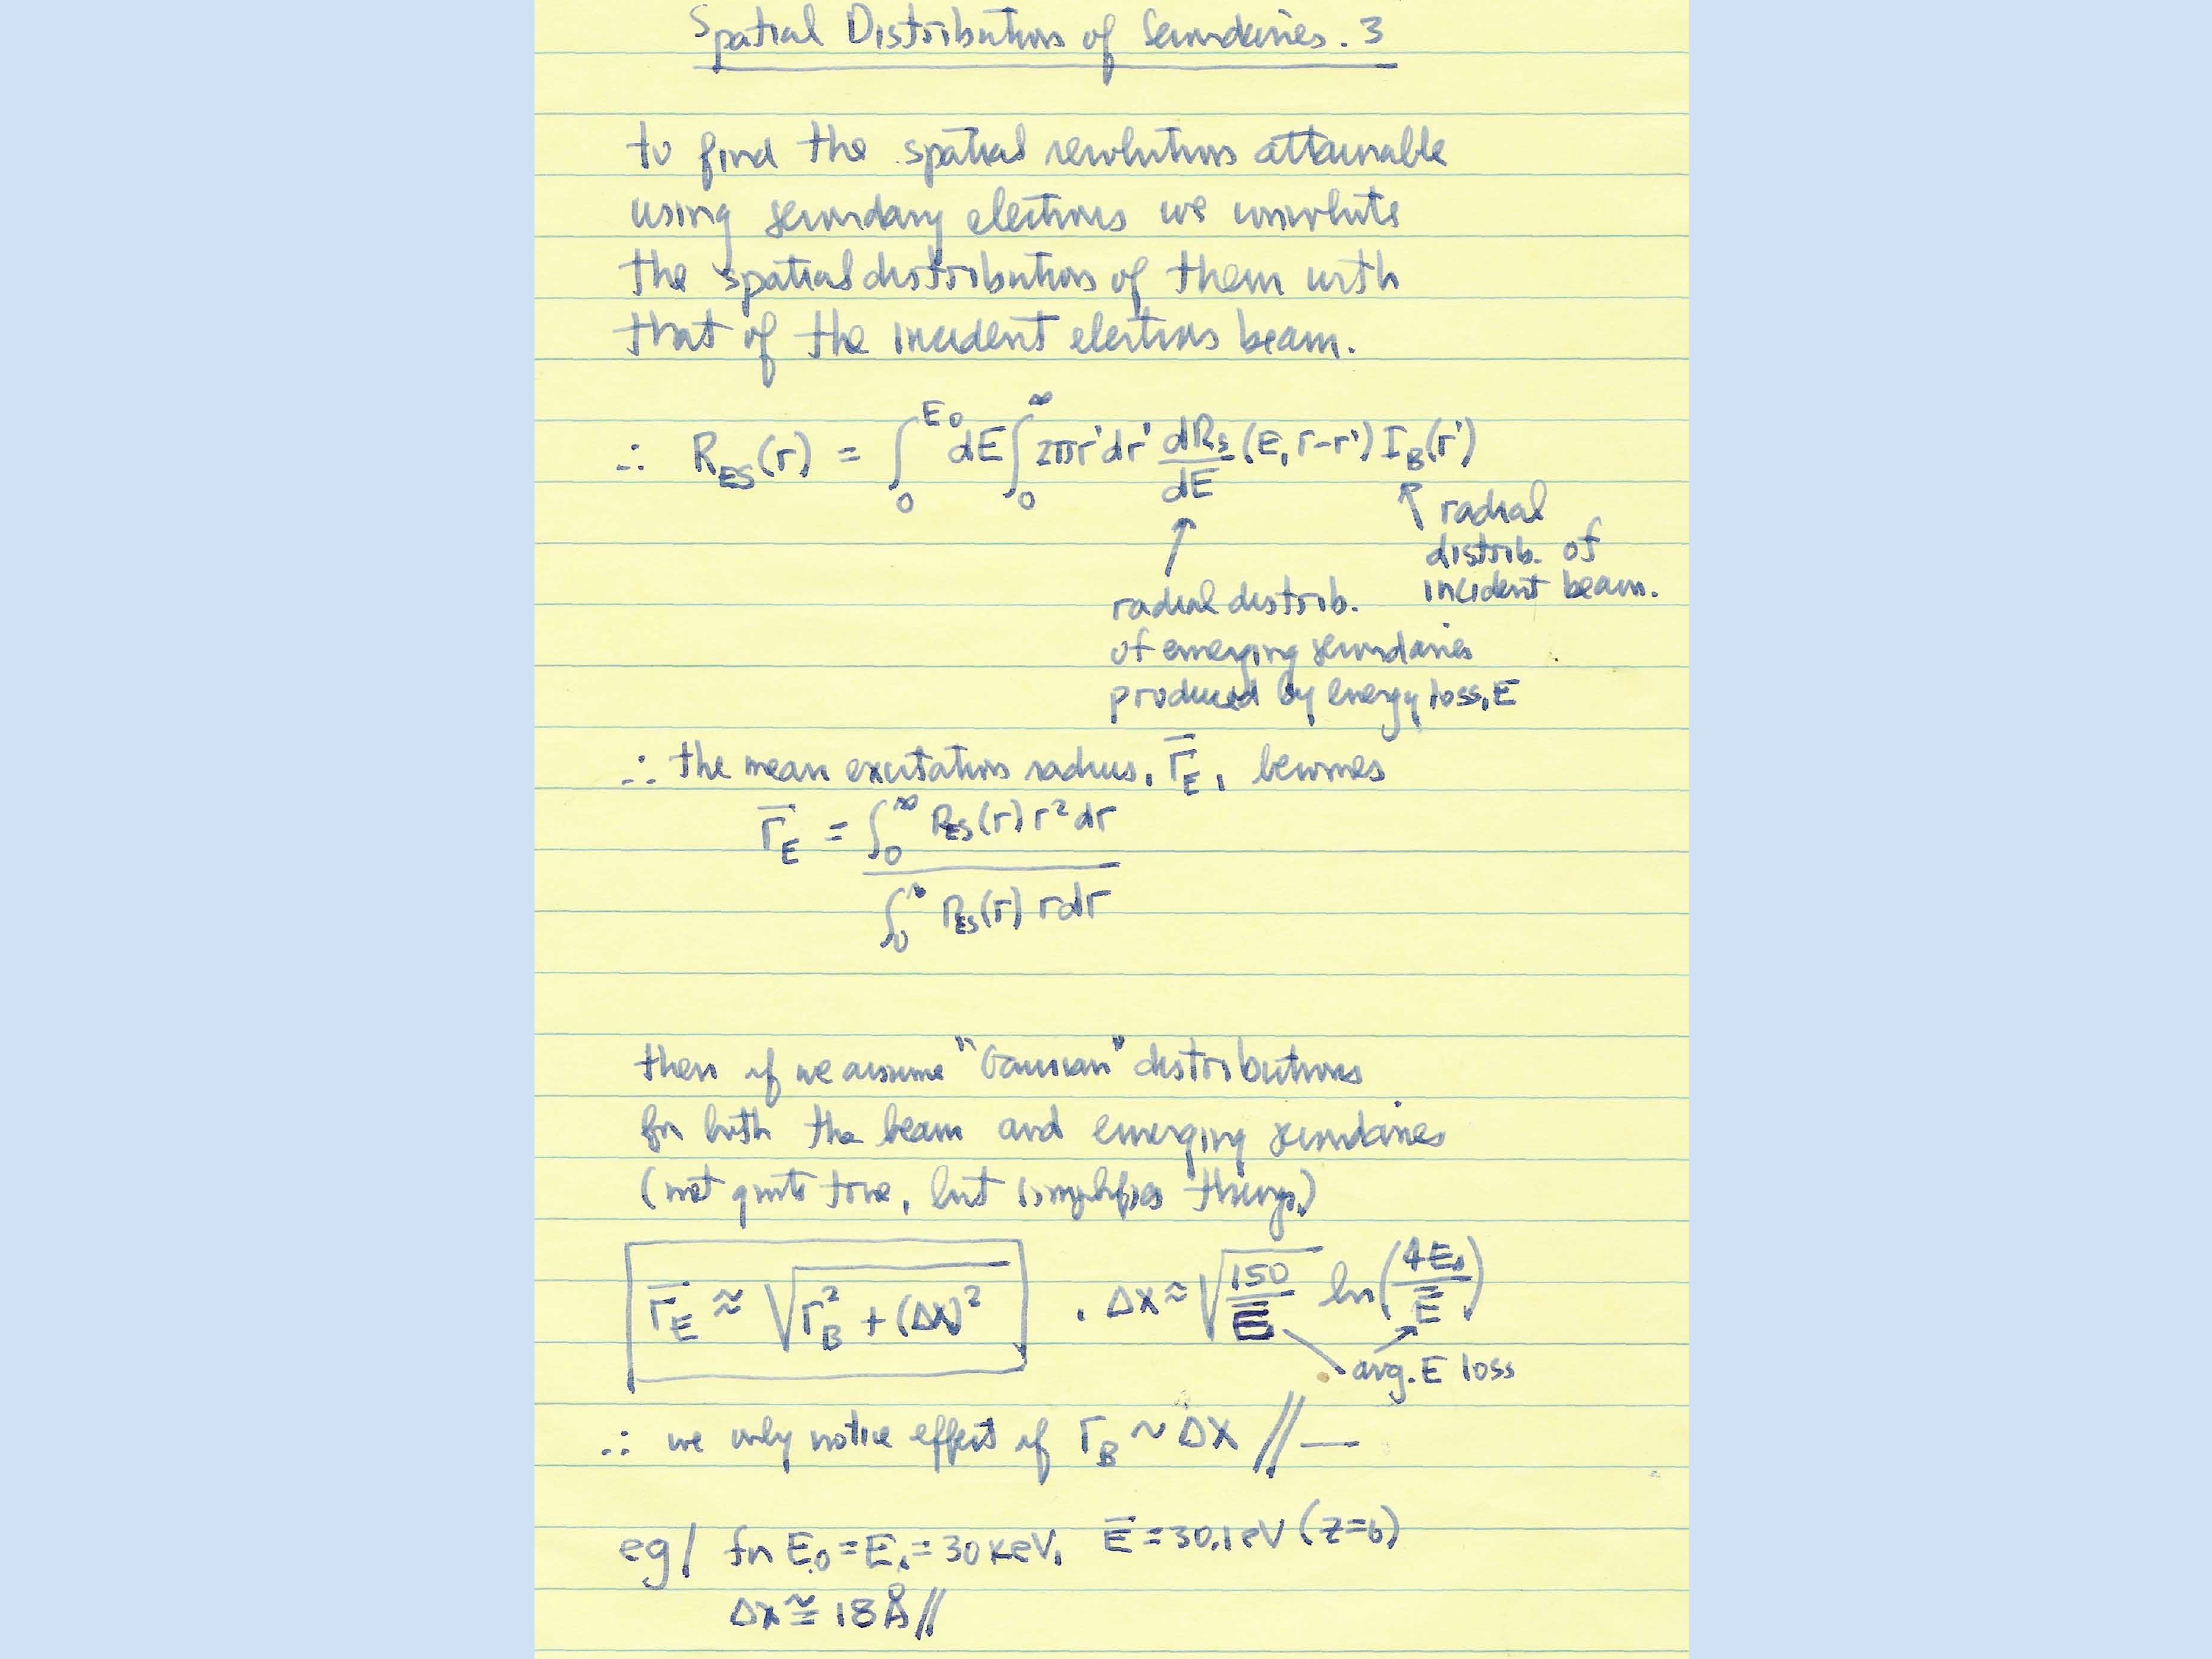 Spatial Distribution of Secondaries. 3
to find the spatial resolution attainable
using secondary electrons we convolute
the spatial distribution of them with
that of the incident electron beam.
∴ R_ES(r) = ∫₀^E₀ dE ∫₀^∞ 2πr'dr' dR_s/dE (E, r-r') I_B(r')
↑ radial
distrib. of
incident beam.
↑
radial distrib.
of emerging secondaries
produced by energy loss, E
∴ the mean excitation radius, r̄_E, becomes
r̄_E = ∫₀^∞ R_ES(r) r² dr
∫₀^∞ R_ES(r) r dr
then if we assume "Gaussian" distributions
for both the beam and emerging secondaries
(not quite true, but simplifies things.)
r̄_E ≈ √(r_B² + (Δx)²) , Δx ≈ √(150/Ē) ln(4E₀/Ē)
avg. E loss
∴ we only notice effect if r_B ~ Δx // —
eg/ for E₀ = E₁ = 30 keV, Ē = 30.1 eV (Z=6)
Δx ≅ 18 Å //